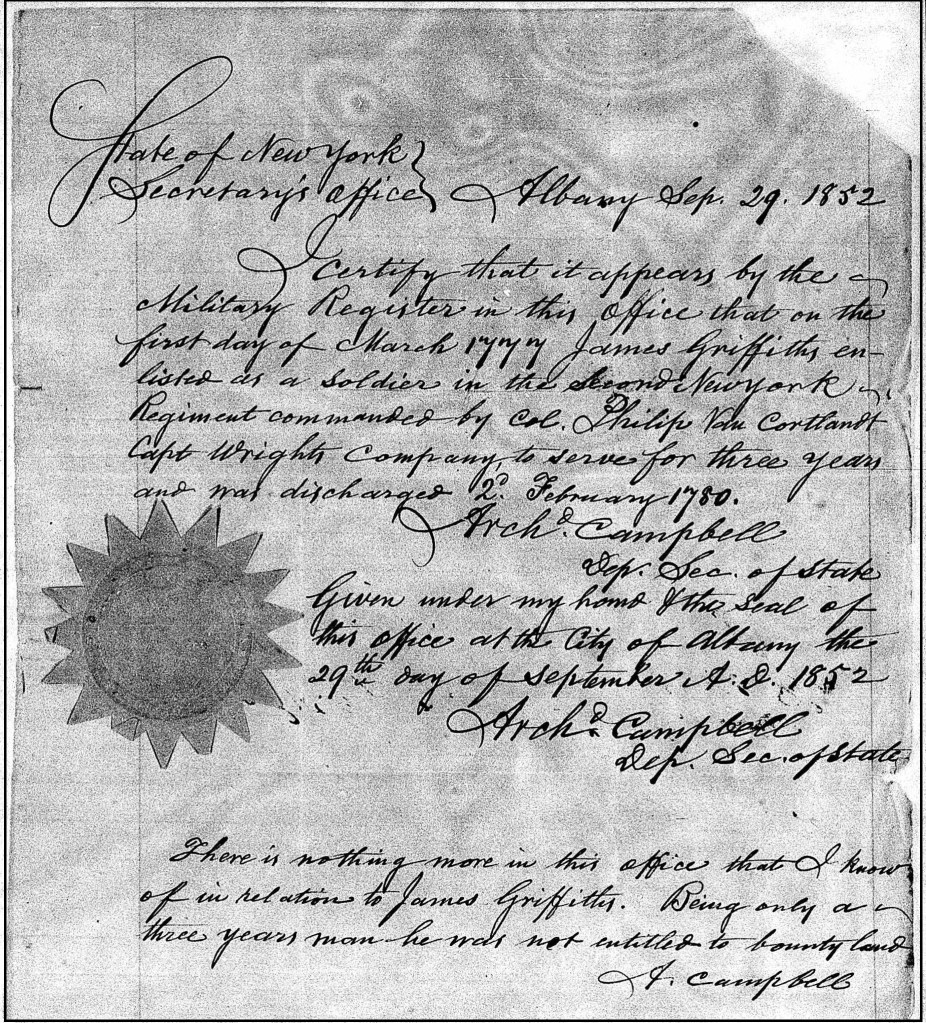 State of New York }
Secretary's Office } Albany Sep. 29. 1852
I certify that it appears by the
Military Register in this Office that on the
first day of March 1777 James Griffiths en-
listed as a soldier in the Second New York
Regiment commanded by Col. Philip Van Cortlandt
Capt Wrights Company, to serve for three years
and was discharged 2d. February 1780.
Archd. Campbell
Dep. Sec. of State
Given under my hand & the seal of
this office at the City of Albany the
29th day of September A.D. 1852
Archd. Campbell
Dep. Sec. of State
There is nothing more in this office that I know
of in relation to James Griffiths. Being only a
three years man he was not entitled to bounty land
A. Campbell